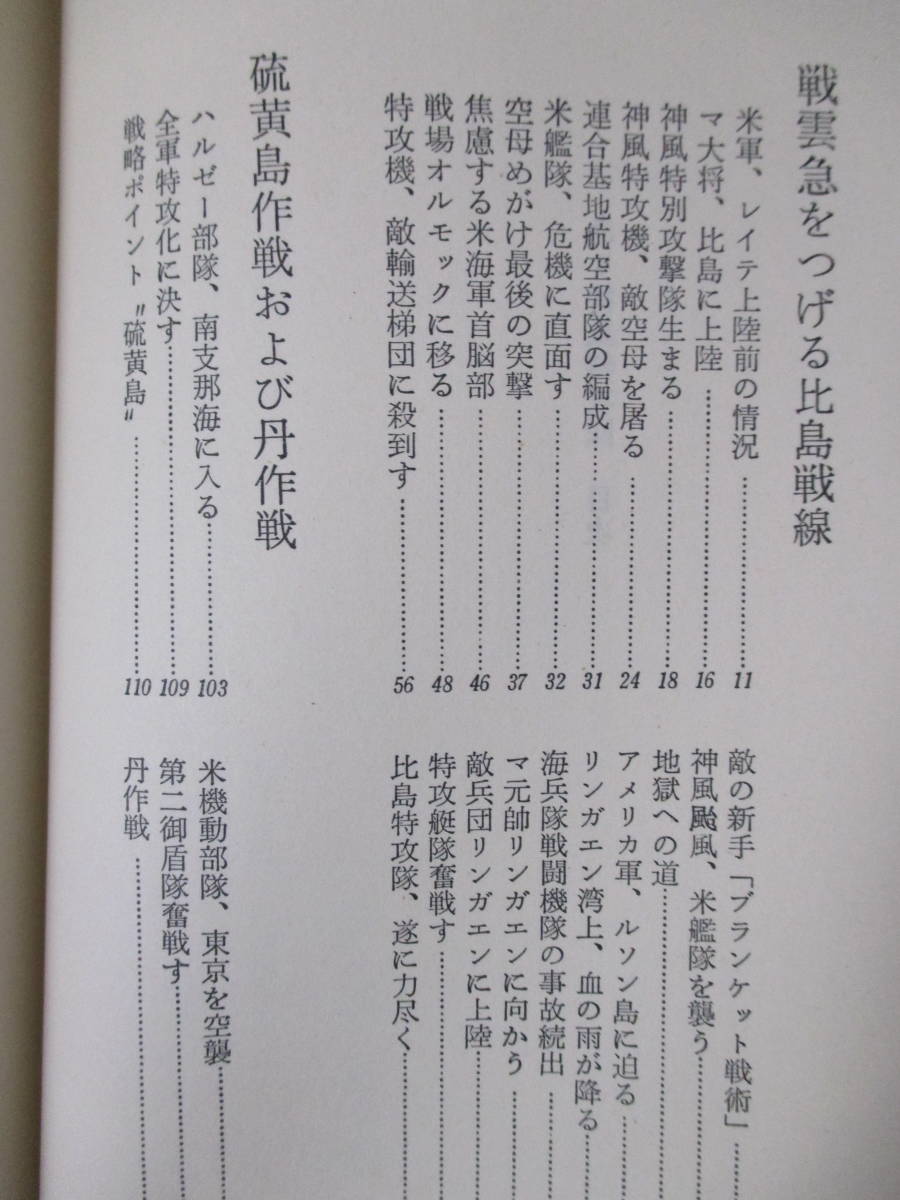 戦雲急をつげる比島戦線
米軍、レイテ上陸前の情況………………11
マ大将、比島に上陸………………16
神風特別攻撃隊生まる………………18
神風特攻機、敵空母を屠る………………24
連合基地航空部隊の編成………………31
米艦隊、危機に直面す………………32
空母めがけ最後の突撃………………37
焦慮する米海軍首脳部………………46
戦場オルモックに移る………………48
特攻機、敵輸送梯団に殺到す………………56
敵の新手「ブランケット戦術」………
神風颱風、米艦隊を襲う………
地獄への道………
アメリカ軍、ルソン島に迫る………
リンガエン湾上、血の雨が降る………
海兵隊戦闘機隊の事故続出………
マ元帥リンガエンに向かう………
敵兵団リンガエンに上陸………
特攻艇隊奮戦す………
比島特攻隊、遂に力尽く………
硫黄島作戦および丹作戦
ハルゼー部隊、南支那海に入る………………103
全軍特攻化に決す………………109
戦略ポイント〝硫黄島〟………………110
米機動部隊、東京を空襲………
第二御盾隊奮戦す………
丹作戦………